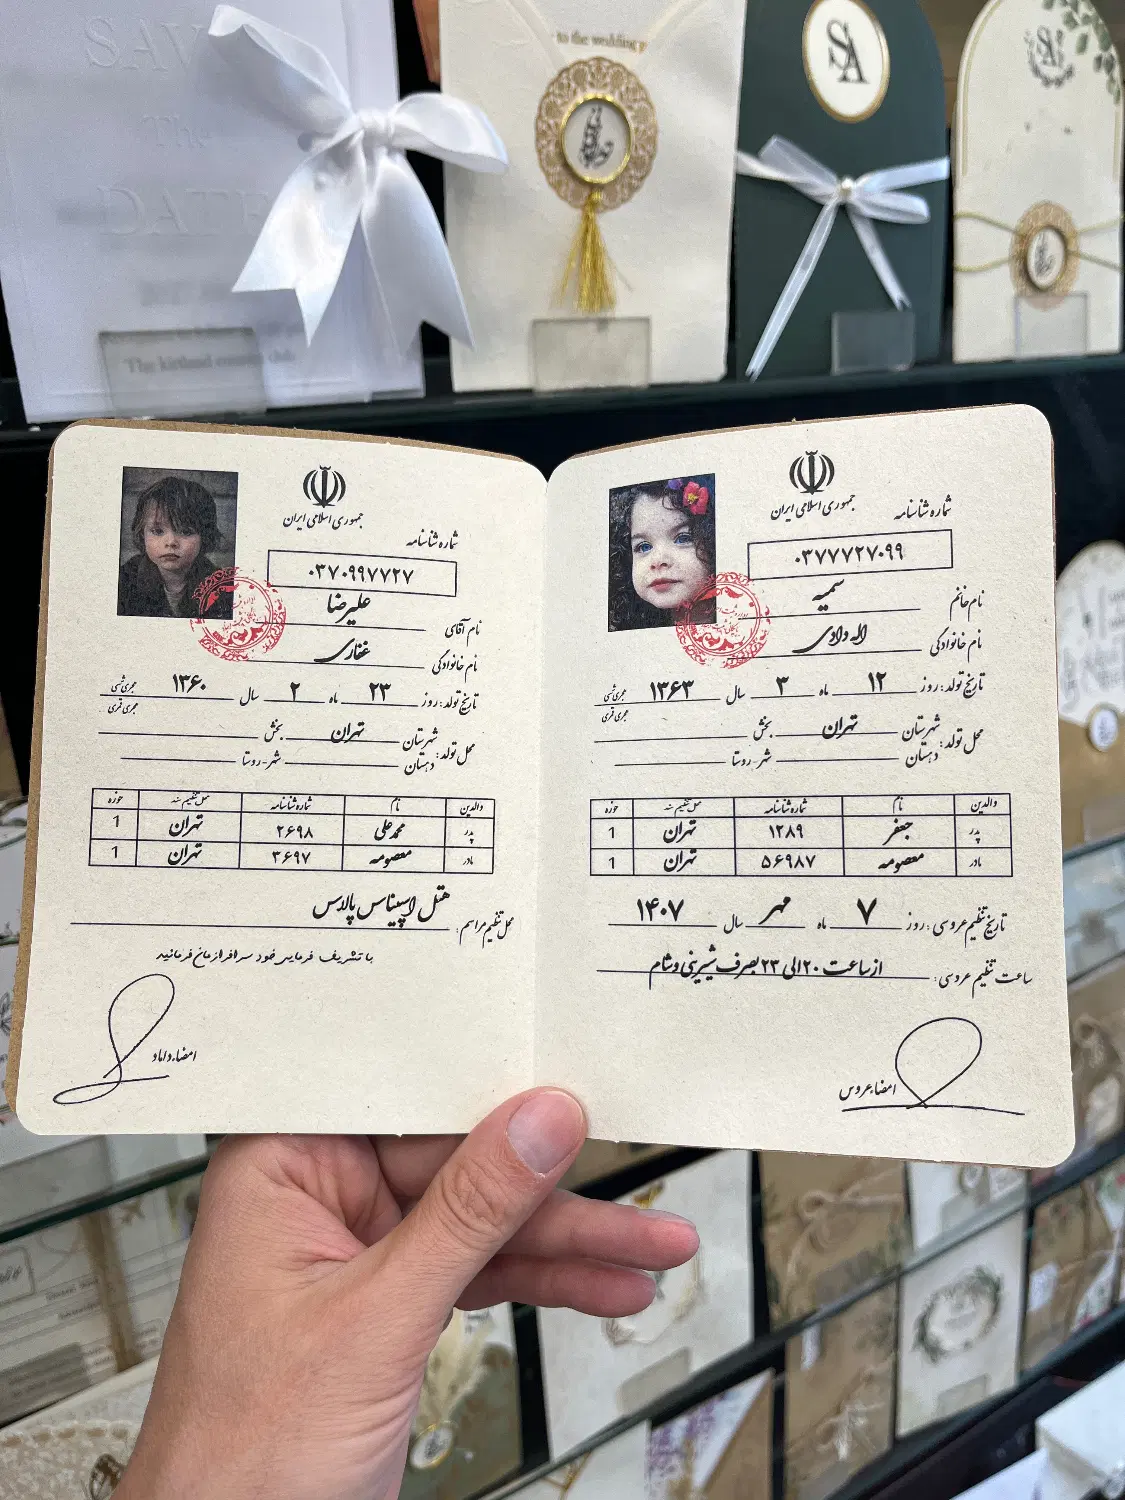 SAVE
The
DATE
to the wedding p
SA
SA
جمهوری اسلامی ایران
شماره شناسنامه
۰۳۷۷۷۲۷۰۹۹
نام خانم سمیه
نام خانوادگی اله دادی
تاریخ تولد: روز ۱۲ ماه ۳ سال ۱۳۶۳ هجری شمسی
هجری قمری
محل تولد: شهرستان تهران بخش
دهستان شهر-روستا
والدین نام شماره شناسنامه محل تنظیم سند حوزه
پدر جعفر ۱۲۸۹ تهران 1
مادر معصومه ۵۶۹۸۷ تهران 1
تاریخ تنظیم عروسی: روز ۷ ماه مهر سال ۱۴۰۷
ساعت تنظیم عروسی: از ساعت ۲۰ الی ۲۳ بصرف شیرینی و شام
امضاء عروس
جمهوری اسلامی ایران
شماره شناسنامه
۰۳۷۰۹۹۷۷۲۷
نام آقای علیرضا
نام خانوادگی غفاری
تاریخ تولد: روز ۲۳ ماه ۲ سال ۱۳۶۰ هجری شمسی
هجری قمری
محل تولد: شهرستان تهران بخش
دهستان شهر-روستا
والدین نام شماره شناسنامه محل تنظیم سند حوزه
پدر محمدعلی ۲۶۹۸ تهران 1
مادر معصومه ۳۶۹۷ تهران 1
محل تنظیم مراسم: هتل اسپیناس پالاس
با تشریف فرمایی خود سرافرازمان فرمائید
امضاء داماد